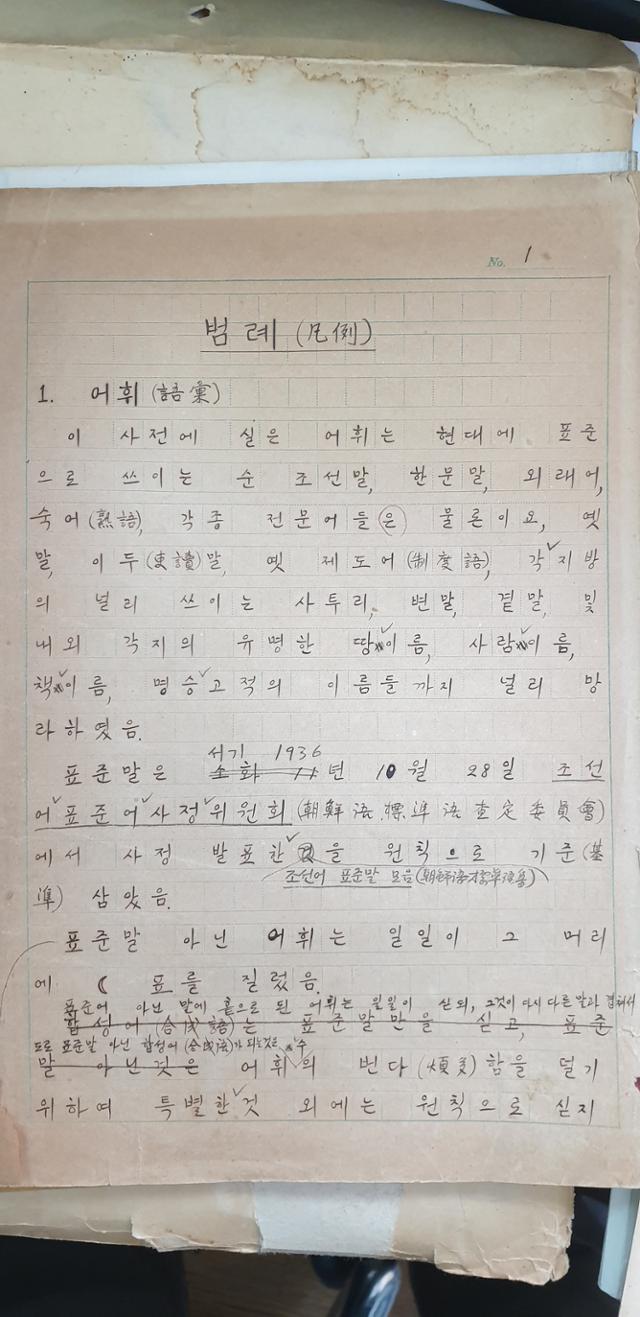 No. 1
범례 (凡例)
1. 어휘 (語彙)
이 사전에 실은 어휘는 현대에 표준
으로 쓰이는 순 조선말, 한문말, 외래어,
숙어 (熟語), 각종 전문어들은 물론이요, 옛
말, 이두 (吏讀) 말, 옛 제도어 (制度語), 각 지방
의 널리 쓰이는 사투리, 변말, 곁말, 및
내외 각지의 유명한 땅이름, 사람이름,
책이름, 명승 고적의 이름들까지 널리 망
라하였음.
서기 1936
표준말은 소화 11년 10월 28일 조선
어 표준어 사정 위원회 (朝鮮語 標準語 査定 委員會)
에서 사정 발표한 을 원칙으로 기준 (基
조선어 표준말 모음
準) 삼았음.
표준말 아닌 어휘는 일일이 그 머리
에 ( 표를 질렀음.
표준어 아닌 말에 홑으로 된 어휘는 일일이 싣되, 그것이 다시 다른 말과 겹쳐서
합성어 (合成語)는 표준말만을 싣고, 표준
도로 표준말 아닌 합성어 (合成語)가 되는것은 수
말 아닌것은 어휘의 번다 (煩多)함을 덜기
위하여 특별한 것 외에는 원칙으로 싣지